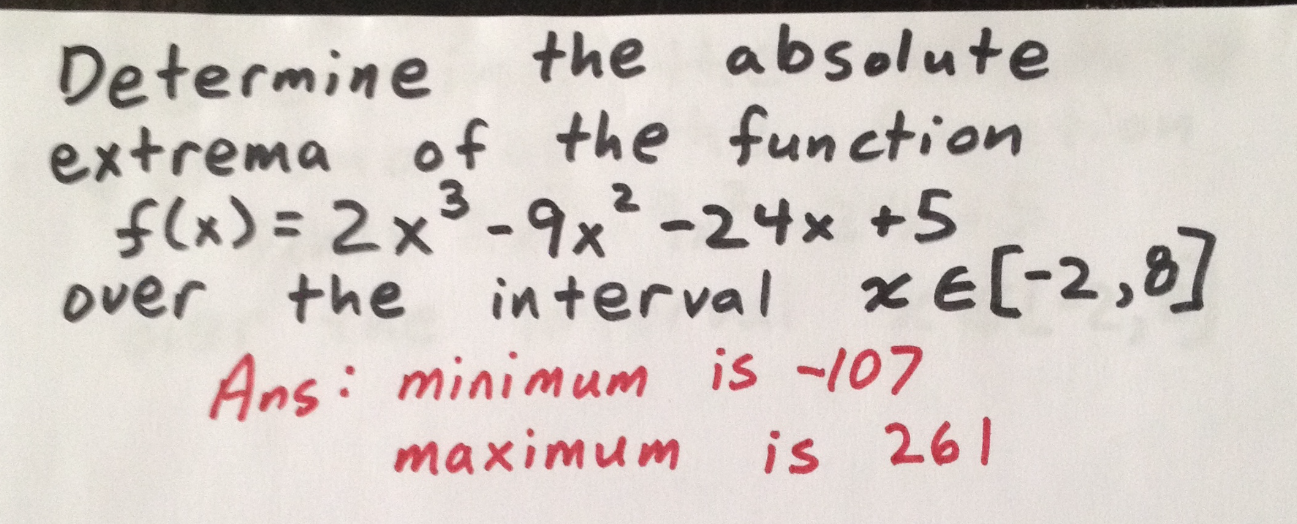 Determine the absolute
extrema of the function
f(x) = 2x³ -9x² -24x +5
over the interval x ∈ [-2,8]
Ans: minimum is -107
maximum is 261